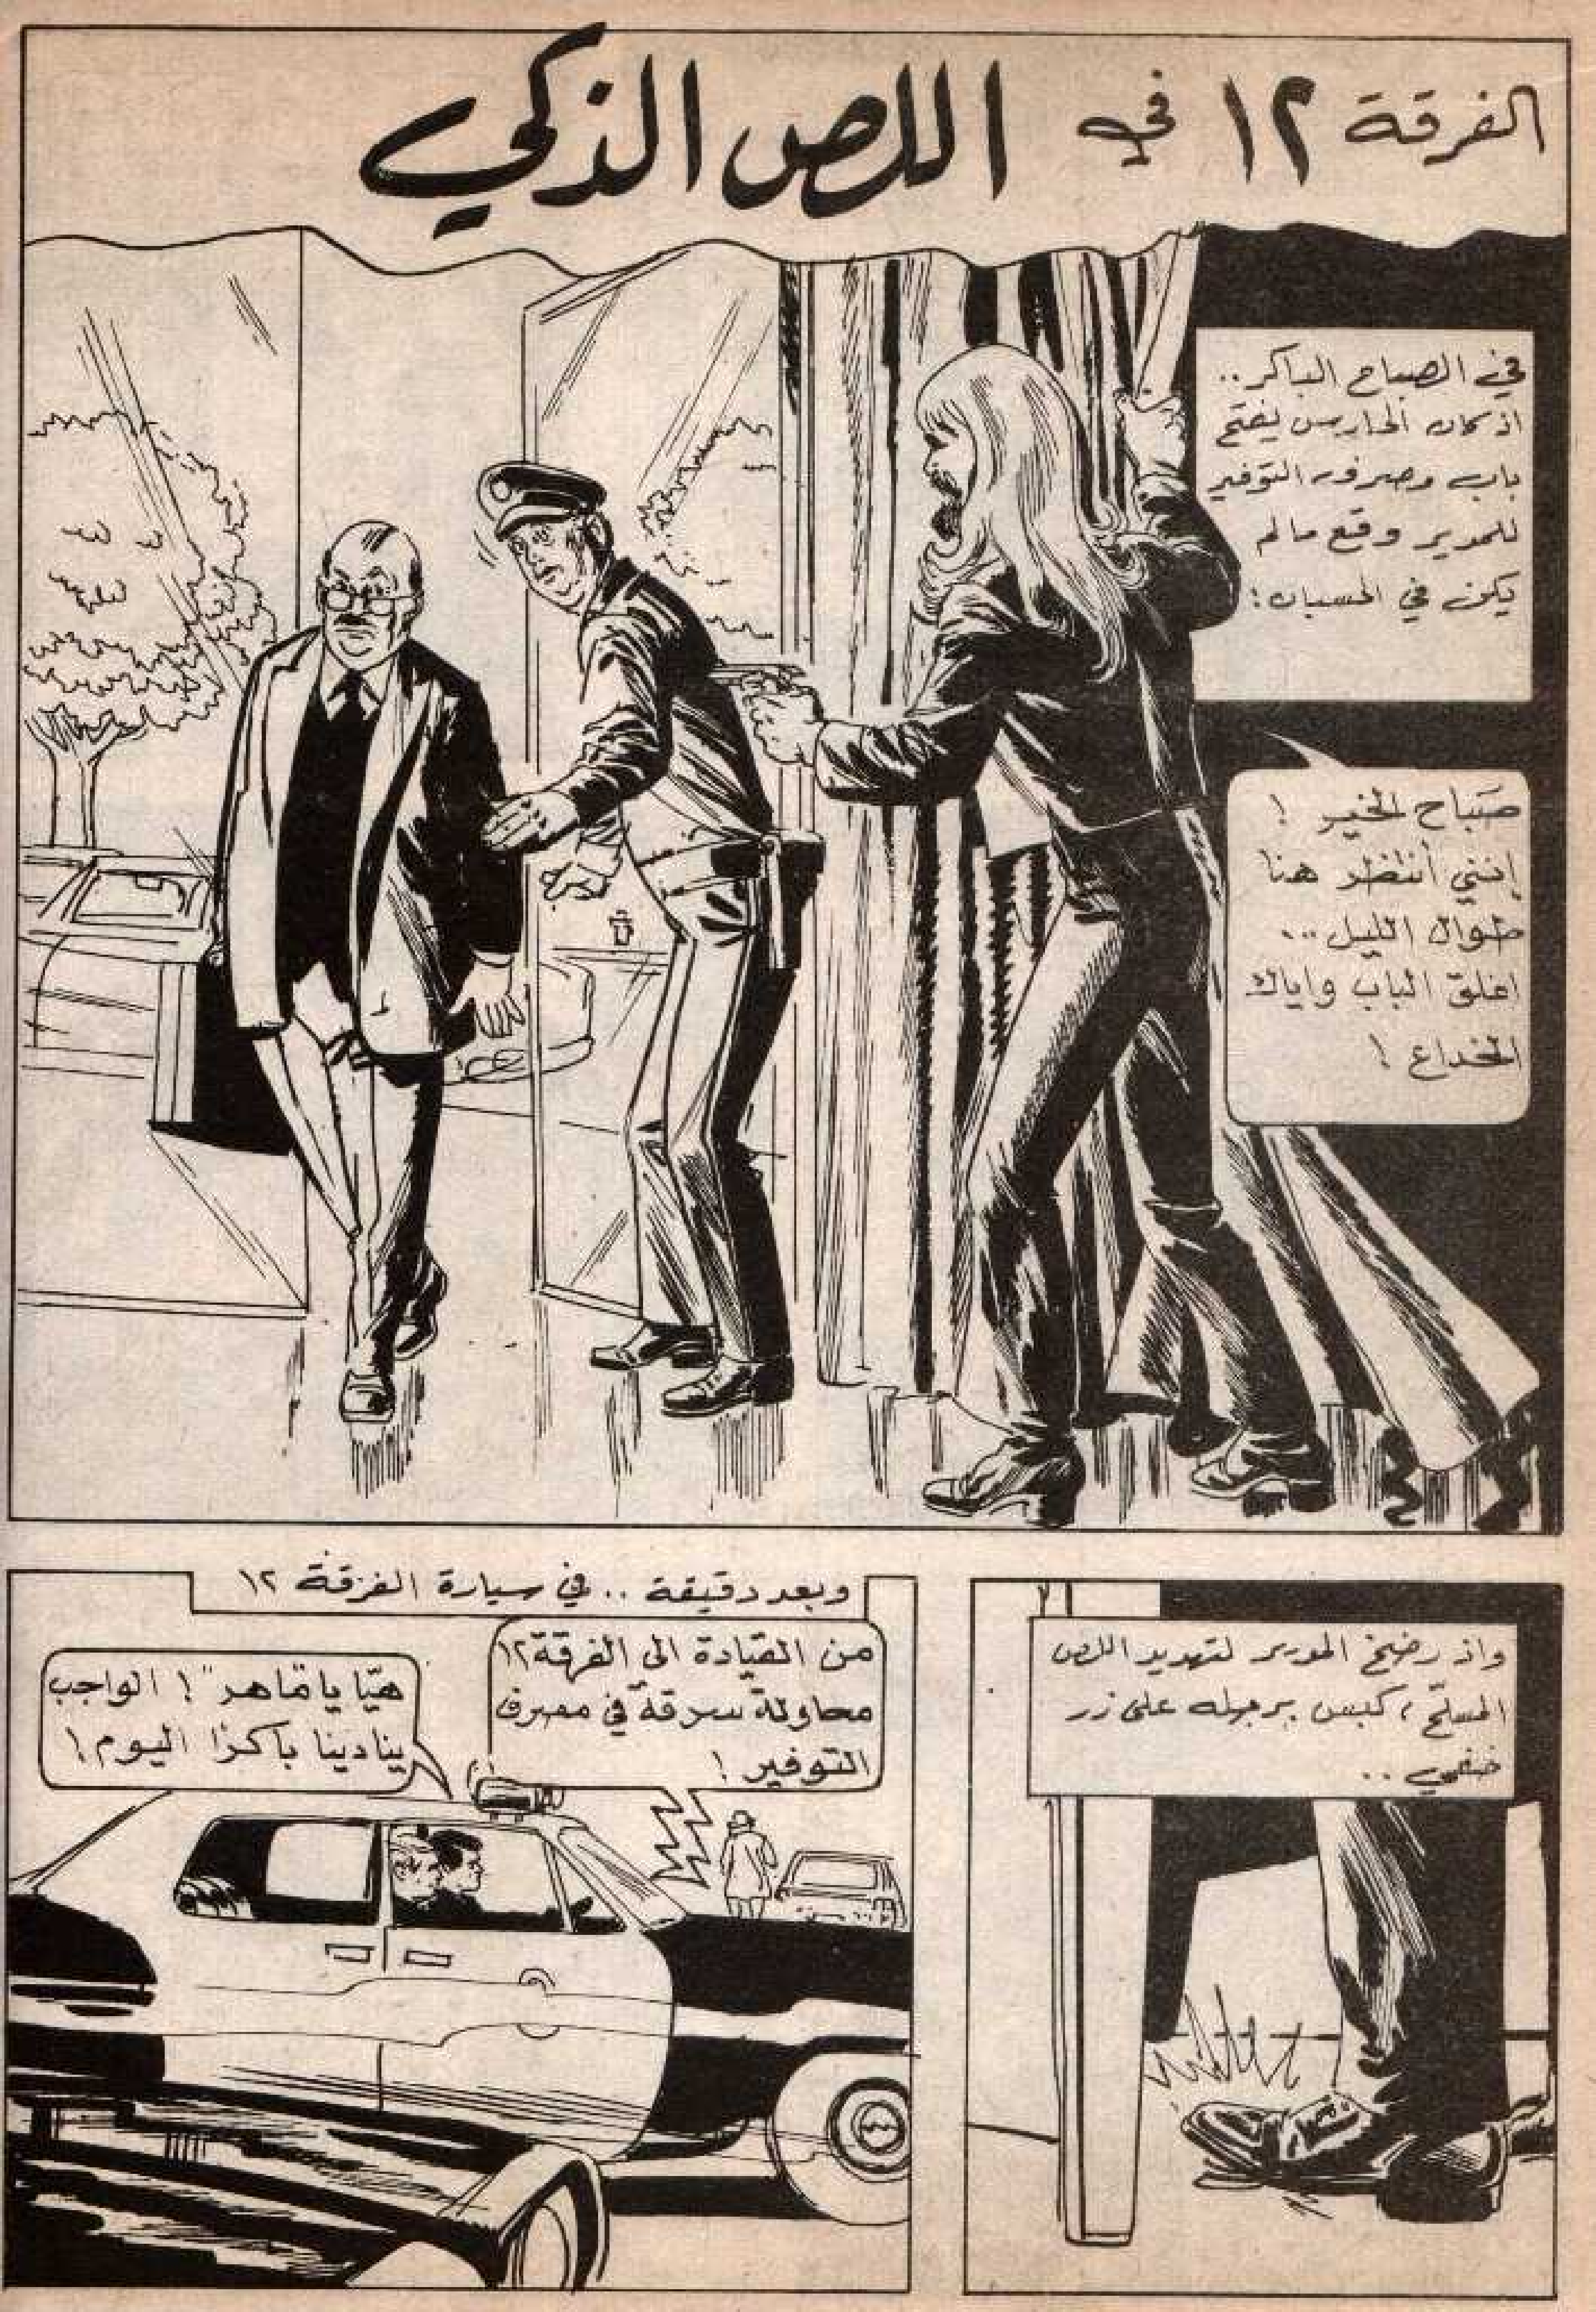 الفرقة ١٢ في اللص الذكي
في الصباح الباكر..
اذ كان الحارس يفتح
باب مصرف التوفير
للمدير وقع ما لم
يكن في الحسبان:
صباح الخير !
إنني أنتظر هنا
طوال الليل...
اغلق الباب واياك
الخداع !
واذ رضخ المدير لتهديد اللص
المسلّح، كبس برجله على زر
خفي ..
وبعد دقيقة .. في سيارة الفرقة ١٢
من القيادة الى الفرقة ١٢
محاولة سرقة في مصرف
التوفير !
هيّا يا "ماهر" ! الواجب
ينادينا باكرًا اليوم !